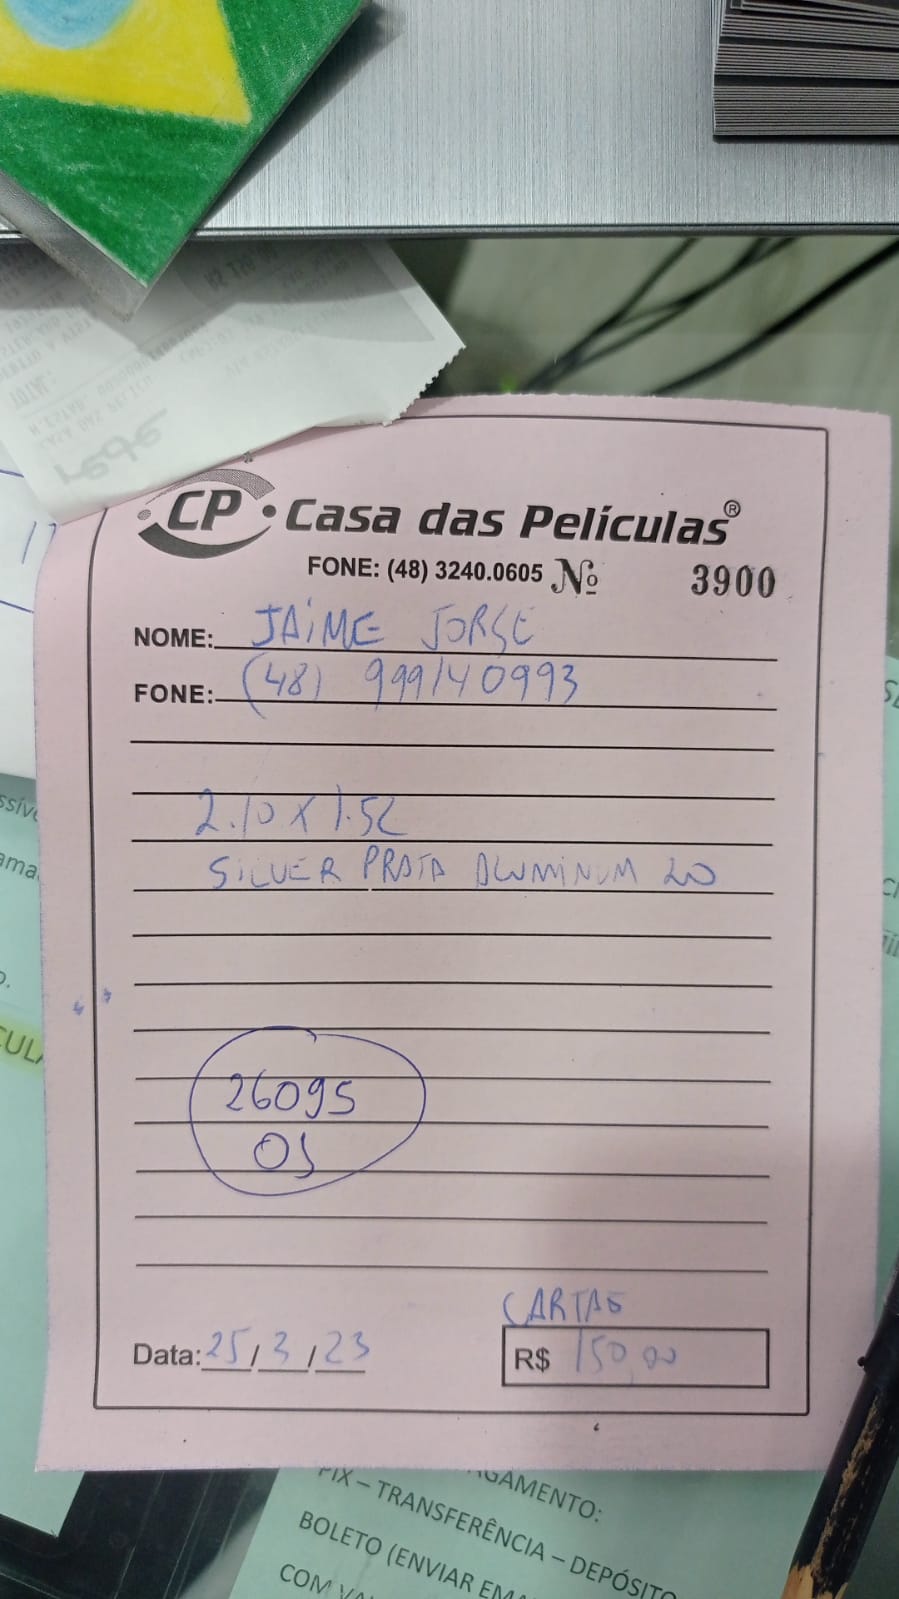 rede
CP
Casa das Películas®
FONE: (48) 3240.0605 Nº 3900
NOME: JAIME JORGE
FONE: (48) 999140993
2.10 x 1.52
SILVER PRATA ALUMINUM 20
26095
OS
CARTAO
Data: 25/3/23 R$ 150,00
GAMENTO:
PIX – TRANSFERÊNCIA – DEPÓSITO
BOLETO (ENVIAR EMA
COM VA